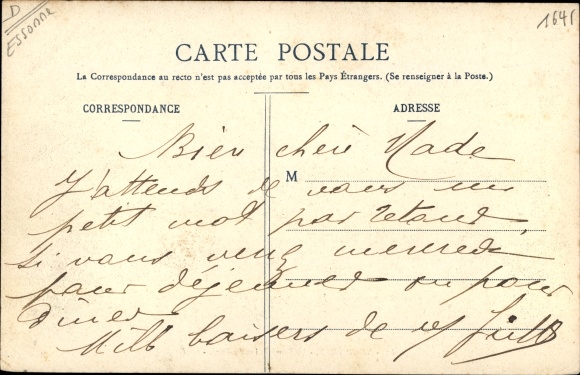 D
Essonne
1645
CARTE POSTALE
La Correspondance au recto n'est pas acceptée par tous les Pays Étrangers. (Se renseigner à la Poste.)
CORRESPONDANCE
ADRESSE
Bien chère Made
M
J'attends de vous un
petit mot par retour,
si vous venez mercredi
pour déjeuner ou pour
Diner
Mille baisers de